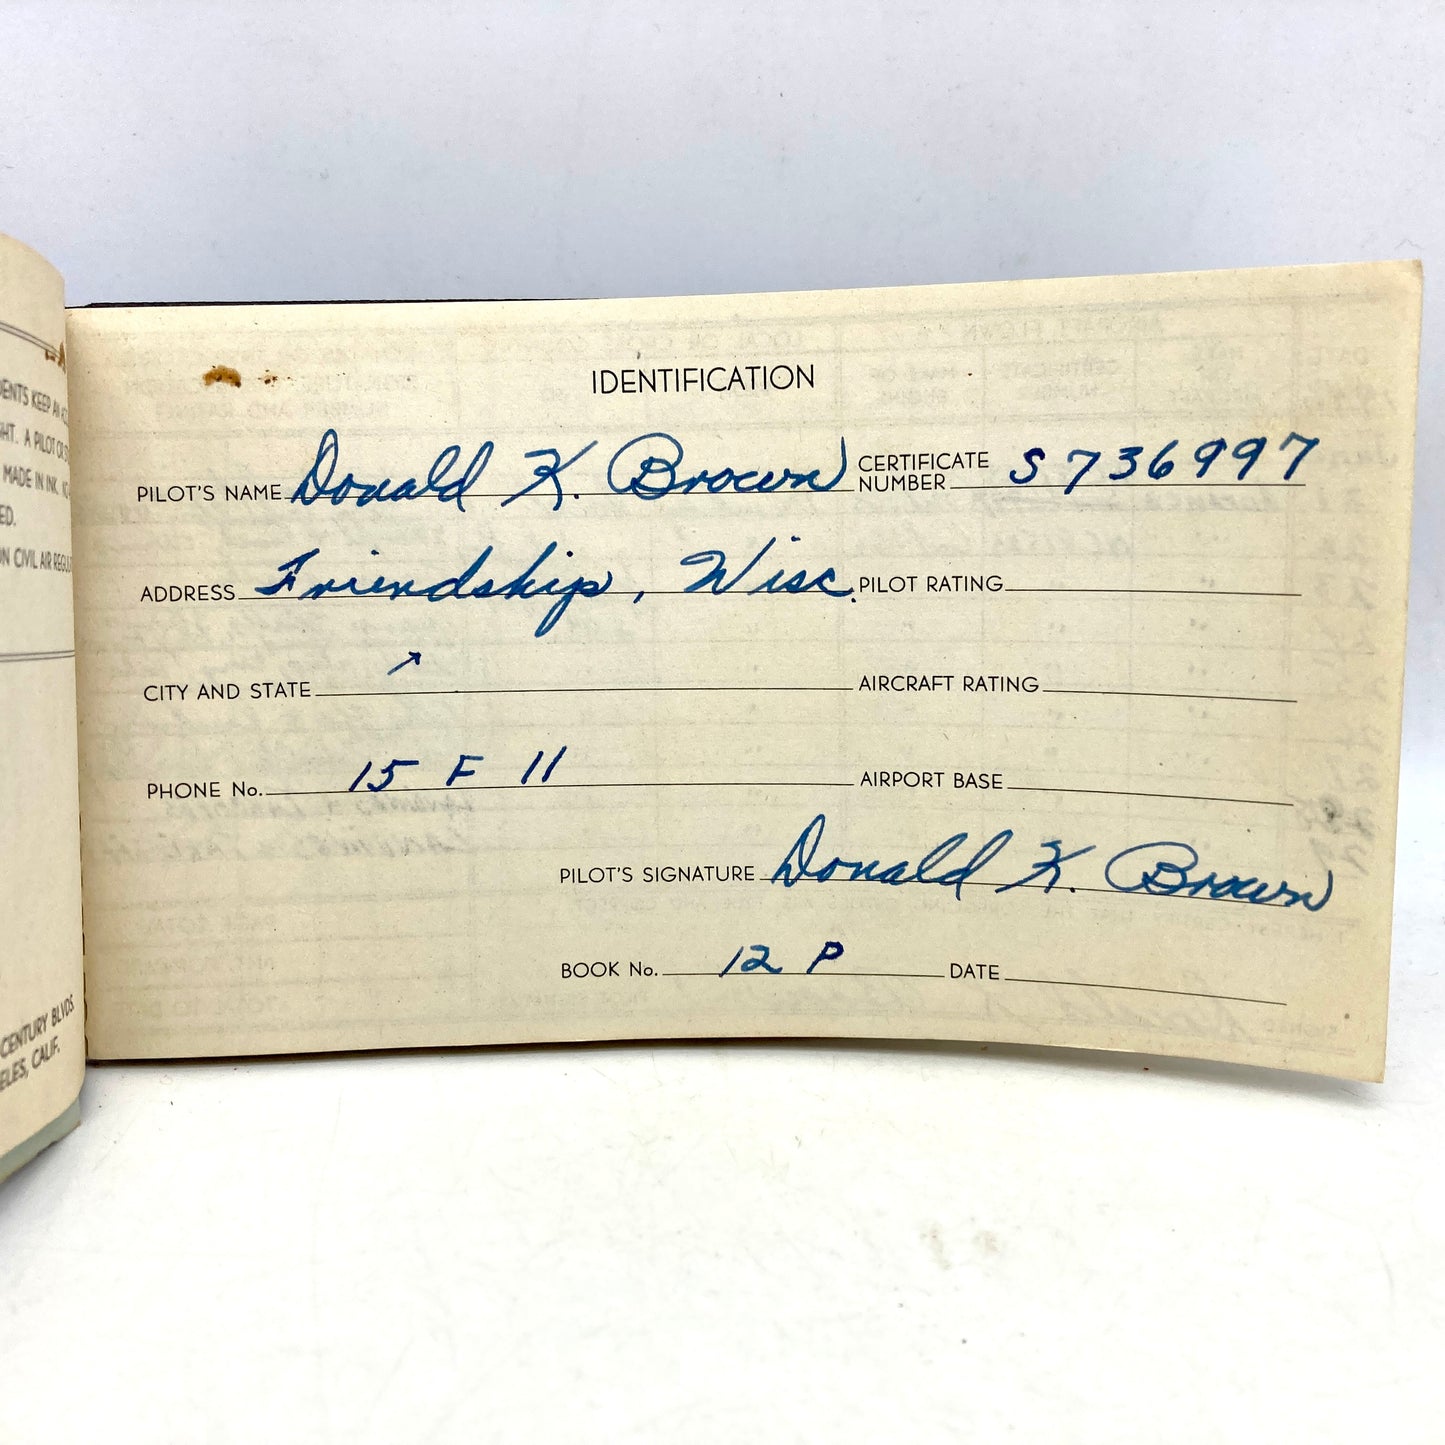 DENTS KEEP AN AC
HT. A PILOT OR S
MADE IN INK. NO
ED.
ON CIVIL AIR REGUL
CENTURY BLVDS.
ELES, CALIF.
IDENTIFICATION
PILOT'S NAME Donald K. Brown CERTIFICATE NUMBER S736997
ADDRESS Friendship, Wisc. PILOT RATING
CITY AND STATE ↗ AIRCRAFT RATING
PHONE No. 15 F 11 AIRPORT BASE
PILOT'S SIGNATURE Donald K. Brown
BOOK No. 12 P DATE